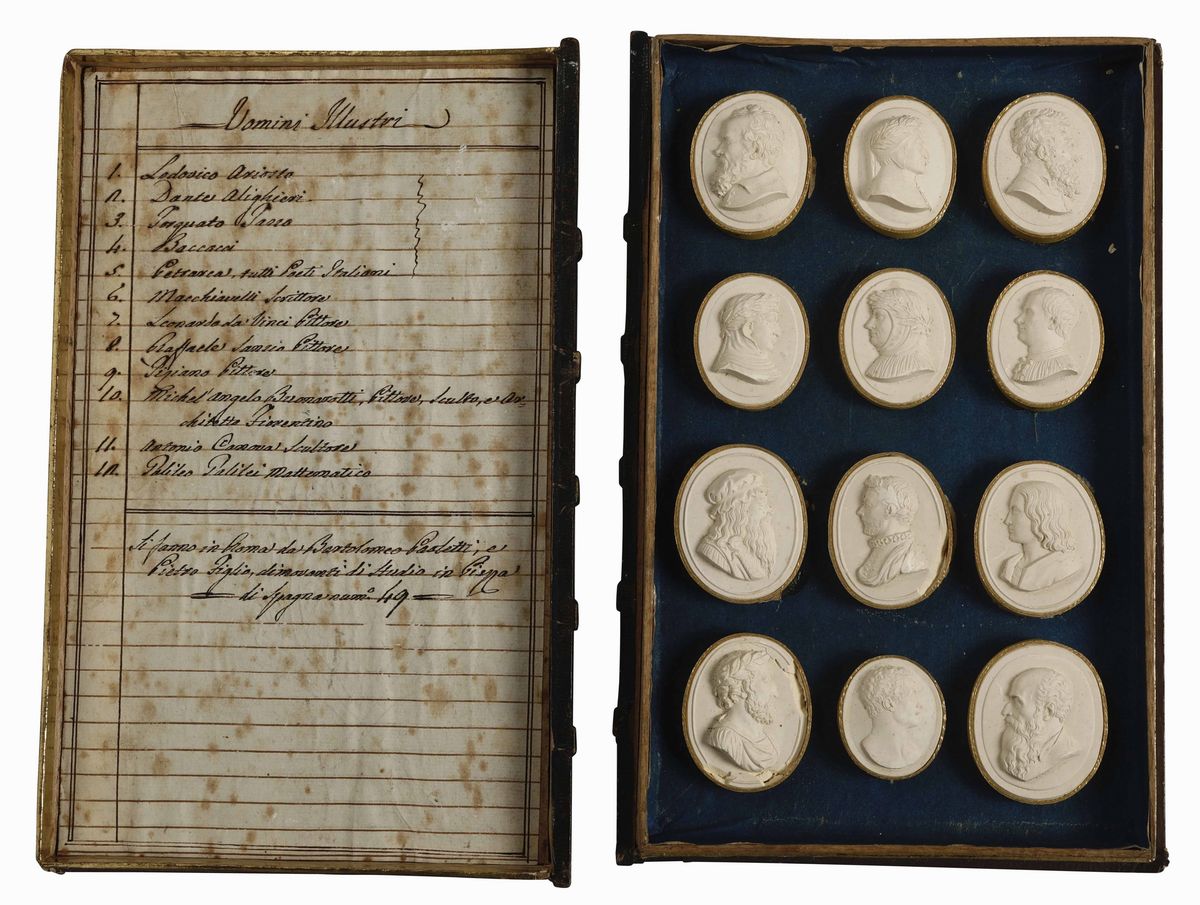 Uomini Illustri
1. Lodovico Ariosto
2. Dante Alighieri
3. Torquato Tasso
4. Baccacci
5. Petrarca, tutti Poeti Italiani
6. Macchiavelli Scrittore
7. Leonardo da Vinci Pittore
8. Raffaele Sanzio Pittore
9. Tiziano Pittore
10. Michel'angelo Buonarotti, Pittore, Sculto, e Ar-
chitetto Fiorentino
11. Antonio Canova Scultore
12. Galileo Galilei Mattematico
Si fanno in Roma da Bartolomeo Paoletti, e
Pietro Figlio, dimoranti di Studio in Piazza
di Spagna num.º 49